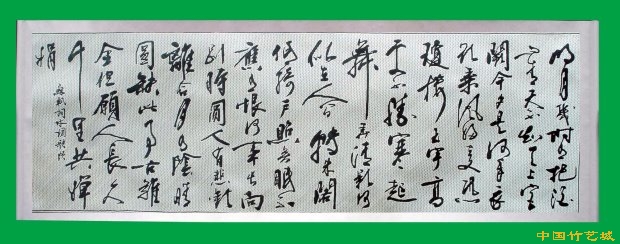 明月几时有把酒
问青天不知天上宫
阙今夕是何年我
欲乘风归去又恐
琼楼玉宇高
处不胜寒起
舞弄清影何
似在人间转朱阁
低绮户照无眠不
应有恨何事长向
别时圆人有悲欢
离合月有阴晴
圆缺此事古难
全但愿人长久
千里共婵
娟
苏轼词水调歌头
中国竹艺城